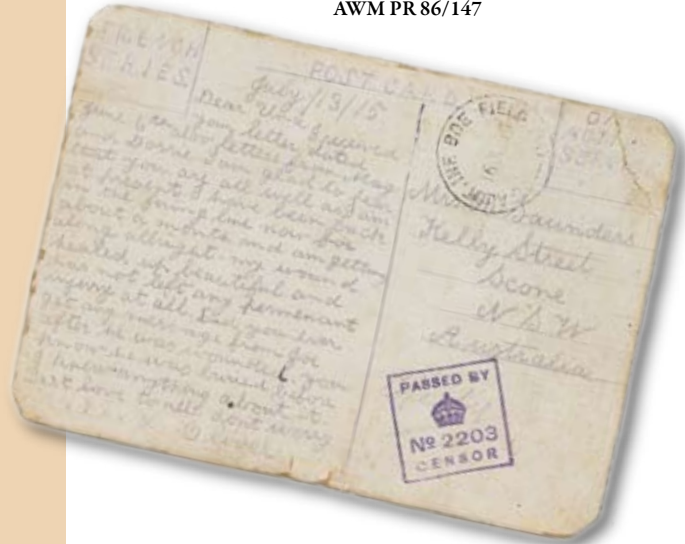 AWM PR 86/147
FRENCH
SERIES
POST CARD
July /13/15
Dear I received
your letter dated
June 6 letters from
and I am glad to
that you are all well as I am
at present I have been back
in the firing line now for
about a month and am getting
along allright my wound
healed up beautiful and
has not left any permenant
injury at all Did you ever
get any message from Joe
after he was wounded you
know he was buried before
I knew anything about it
love to all dont worry
FIELD
BDE
Mrs Saunders
Kelly Street
Scone
N S W
Australia
PASSED BY
Nº 2203
CENSOR